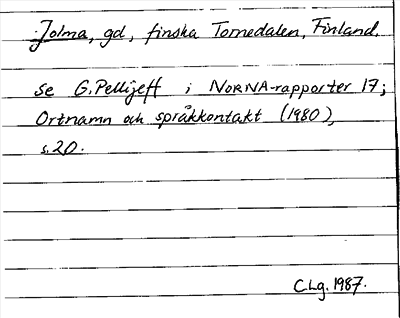 Jolma, gd, finska Tornedalen, Finland.
se G. Pellijeff i NORNA-rapporter 17;
Ortnamn och språkkontakt (1980),
s. 20.
CLg. 1987.